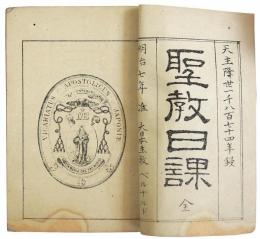 天主降世一千八百七十四年鐫
聖教日課 全
明治七年 准 大日本主教 ベルナルド
VICARIATUS APOSTOLICUS JAPONIÆ